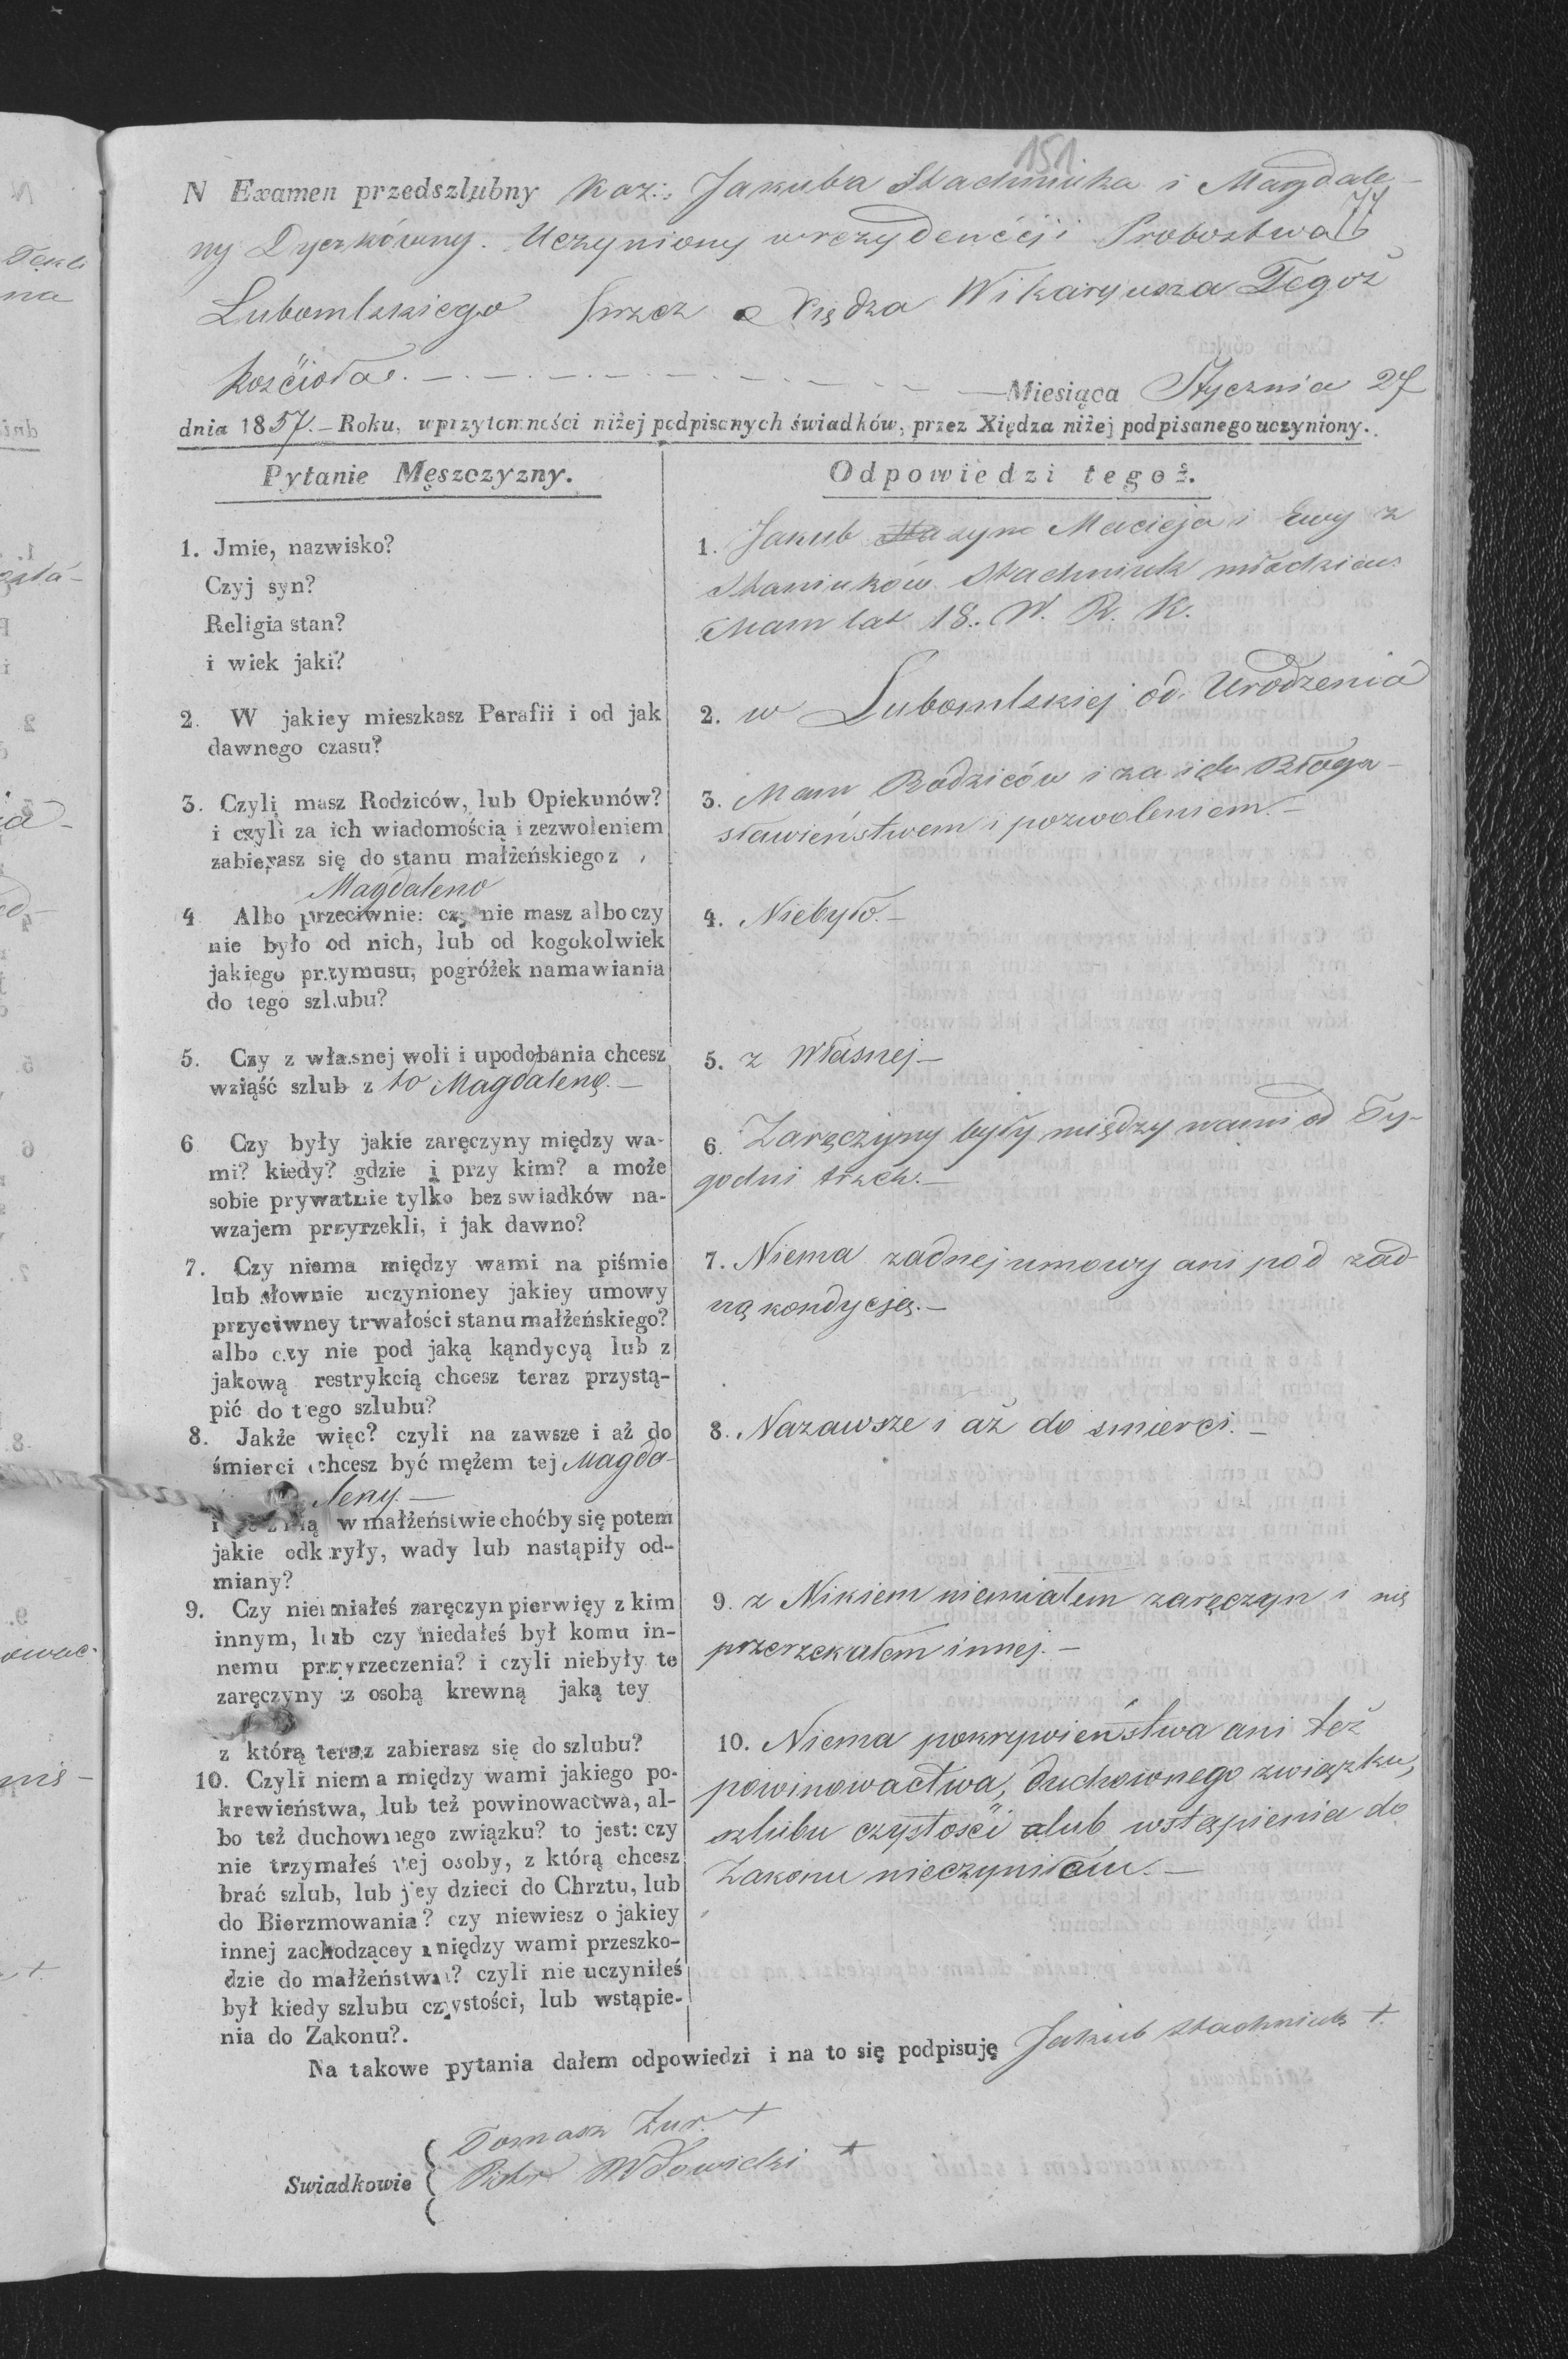 151
N Examen przedszlubny Kaz: Jakuba Stachniuka i Magdale-
77
ny Dyczkówny. Uczyniony w rezydencěji Probostwa
Lubomlskiego przez Xiędza Wikaryusza Tegoż
Kościoła. — Miesiąca Stycznia 27
dnia 1857. — Roku, w przytomności niżej podpisanych świadków, przez Xiędza niżej podpisanego uczyniony.
Pytanie Męszczyzny.
1. Jmie, nazwisko?
Czyj syn?
Religia stan?
i wiek jaki?
2. W jakiey mieszkasz Parafii i od jak
dawnego czasu?
3. Czyli masz Rodziców, lub Opiekunów?
i czyli za ich wiadomością i zezwoleniem
zabierasz się do stanu małżeńskiego z
Magdaleno
4 Albo przeciwnie: czy nie masz albo czy
nie było od nich, lub od kogokolwiek
jakiego przymusu, pogróżek namawiania
do tego szlubu?
5. Czy z własnej woli i upodobania chcesz
wziąść szlub z to Magdaleną. —
6 Czy były jakie zaręczyny między wa-
mi? kiedy? gdzie i przy kim? a może
sobie prywatnie tylko bez swiadków na-
wzajem przyrzekli, i jak dawno?
7. Czy niema między wami na piśmie
lub słownie uczynioney jakiey umowy
przyciwney trwałości stanu małżeńskiego?
albo czy nie pod jaką kąndycyą lub z
jakową restrykcią chcesz teraz przystą-
pić do tego szlubu?
8. Jakże więc? czyli na zawsze i aż do
śmierci chcesz być mężem tej Magda-
leny. —
i w małżeństwie choćby się potem
jakie odkryły, wady lub nastąpiły od-
miany?
9. Czy niemiałeś zaręczyn pierwięy z kim
innym, lub czy niedałeś był komu in-
nemu przyrzeczenia? i czyli niebyły te
zaręczyny z osobą krewną jaką tey
z którą teraz zabierasz się do szlubu?
10. Czyli niema między wami jakiego po-
krewieństwa, lub też powinowactwa, al-
bo też duchownego związku? to jest: czy
nie trzymałeś tej osoby, z którą chcesz
brać szlub, lub jey dzieci do Chrztu, lub
do Bierzmowania? czy niewiesz o jakiey
innej zachodzącey między wami przeszko-
dzie do małżeństwa? czyli nie uczyniłeś
był kiedy szlubu czystości, lub wstąpie-
nia do Zakonu?.
Odpowiedzi tegoż.
1. Jakub syn Macieja i Ewy z
Staniuków Stachniuk młodzian
Mam lat 18. W. R. K.
2. w Lubomlskiej od Urodzenia
3. Mam Rodziców i za ich Błoga-
sławieństwem i pozwoleniem. —
4. Niebyło. —
5. z Własnej —
6. Zaręczyny były między nami od Ty-
godni trzech. —
7. Niema zadnej umowy ani pod zad-
ną kondycją. —
8. Nazawsze i aż do smierci. —
9. z Nikiem niemiałem zaręczyn i nie
przerzekałem innej. —
10. Niema pokrywieństwa ani też
powinowactwa, duchownego związku,
szlubu czystości lub wstąpienia do
Zakonu nieczyniłem. —
Na takowe pytania dałem odpowiedzi i na to się podpisuję Jakub Stachniuk +.
Swiadkowie
Tomasz Zur. +
Piotr Wdowicki +